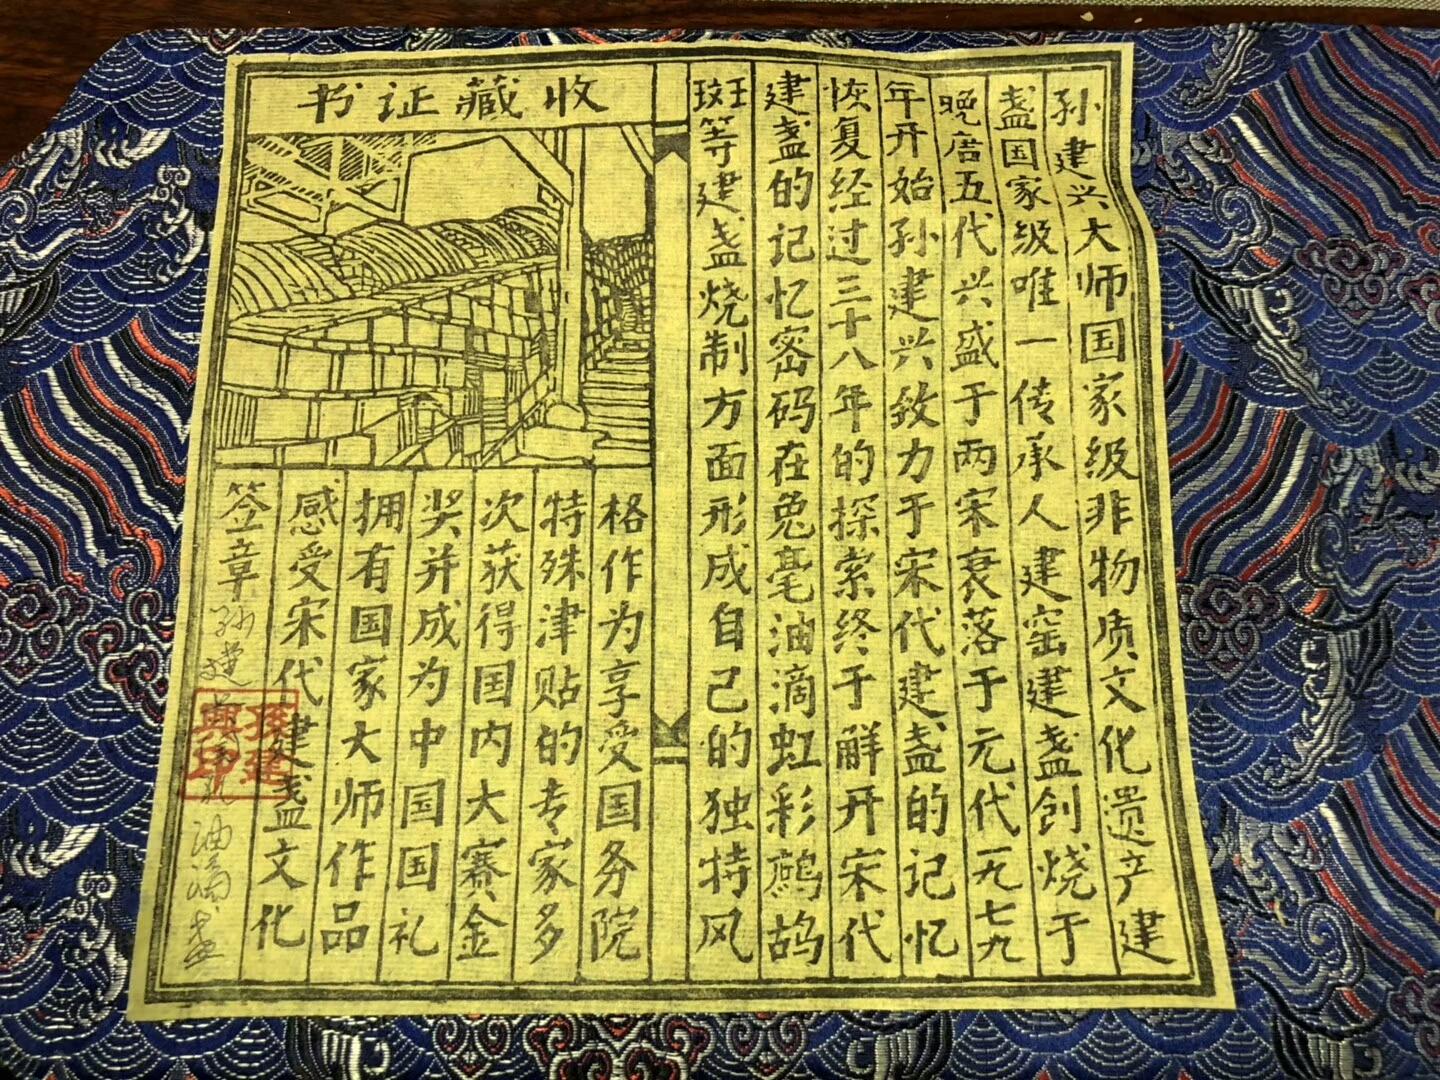 孙建兴大师国家级非物质文化遗产建
盏国家级唯一传承人建窑建盏创烧于
晚唐五代兴盛于两宋衰落于元代一九七九
年开始孙建兴致力于宋代建盏的记忆
恢复经过三十八年的探索终于解开宋代
建盏的记忆密码在兔毫油滴虹彩鹧鸪
斑等建盏烧制方面形成自己的独特风
收藏证书
格作为享受国务院
特殊津贴的专家多
次获得国内大赛金
奖并成为中国国礼
拥有国家大师作品
感受宋代建盏文化
签章 孙建 油滴盏
孫建興印